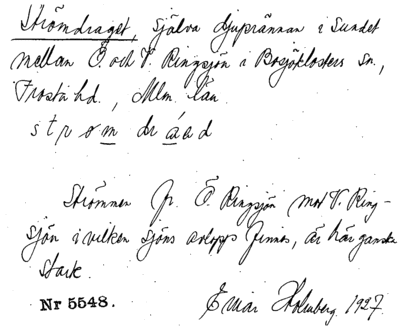 Strömdraget, själva djuprännan i Sundet
mellan Ö och V. Ringsjön i Bosjöklosters sn.,
Frosta hd., Mlm. län.
strom dráad
Strömmen fr. Ö. Ringsjön mot V. Ring-
sjön i vilken sjöns avlopp finnes, är här ganska
stark.
Nr 5548. Einar Holmberg 1927.